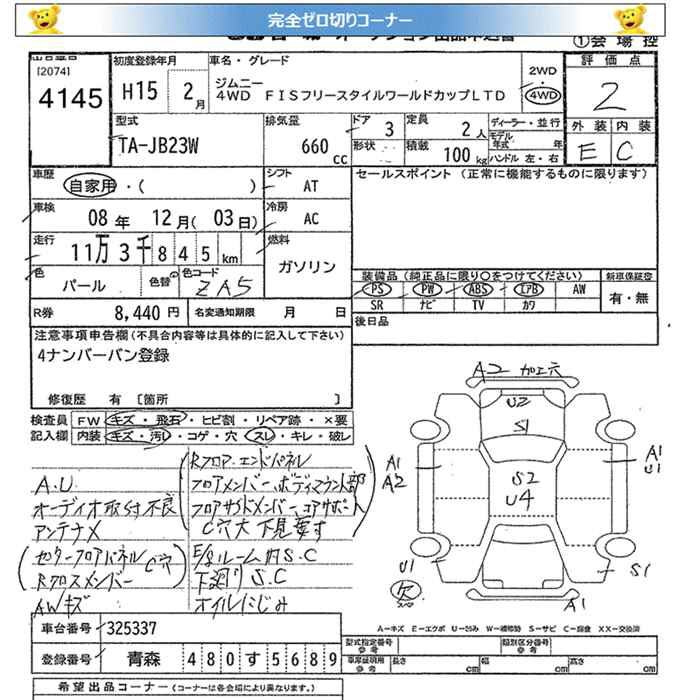 完全ゼロ切りコーナー
①会場控
[2074]
4145
初度登録年月
H15 2月
車名・グレード
ジムニー
4WD FISフリースタイルワールドカップLTD
2WD
4WD
評価点
2
外装 内装
E C
型式
TA-JB23W
排気量
660 cc
ドア 3
形状
定員 2人
積載 100kg
ディーラー・並行
モデル年式 年
ハンドル 左・右
車歴
自家用・( )
シフト AT
セールスポイント (正常に機能するものに限ります)
車検
08年 12月(03日)
冷房 AC
走行
11万3千845km
燃料
ガソリン
色
パール
色替
色コード
ZA5
装備品 (純正品に限り○をつけてください)
新車保証書
PS PW ABS エアB AW
SR ナビ TV カワ
有・無
R券 8,440円
名変通知期限 月 日
後日品
注意事項申告欄(不具合内容等は具体的に記入して下さい)
4ナンバーバン登録
修復歴 有 [箇所 ]
検査員記入欄
FW キズ・飛石・ヒビ割・リペア跡・×要
内装 キズ・汚レ・コゲ・穴・スレ・キレ・破レ
A.U
オーディオ取付不良
アンテナ×
センターフロアパネル C穴
Rクロスメンバー
AWキズ
Rフロア・エンドパネル
フロアメンバー、ボディマウント部
フロアサイドメンバー、コアサポート
C穴大 下見要す
E/gルーム内S.C
下廻りS.C
オイルにじみ
A2 加工穴
U2
S1
S2
U4
A1
A2
A1
U1
U1
S1
欠
スペア
A1
A-キズ E-エクボ U-凹み W-補修跡 S-サビ C-腐食 XX-交換済
車台番号 325337
登録番号 青森 480す5689
型式指定番号 参考
類別区分番号 参考
車庫証明用 参考 長さ cm 幅 cm 高さ cm
希望出品コーナー (コーナーは各会場により異なります。)